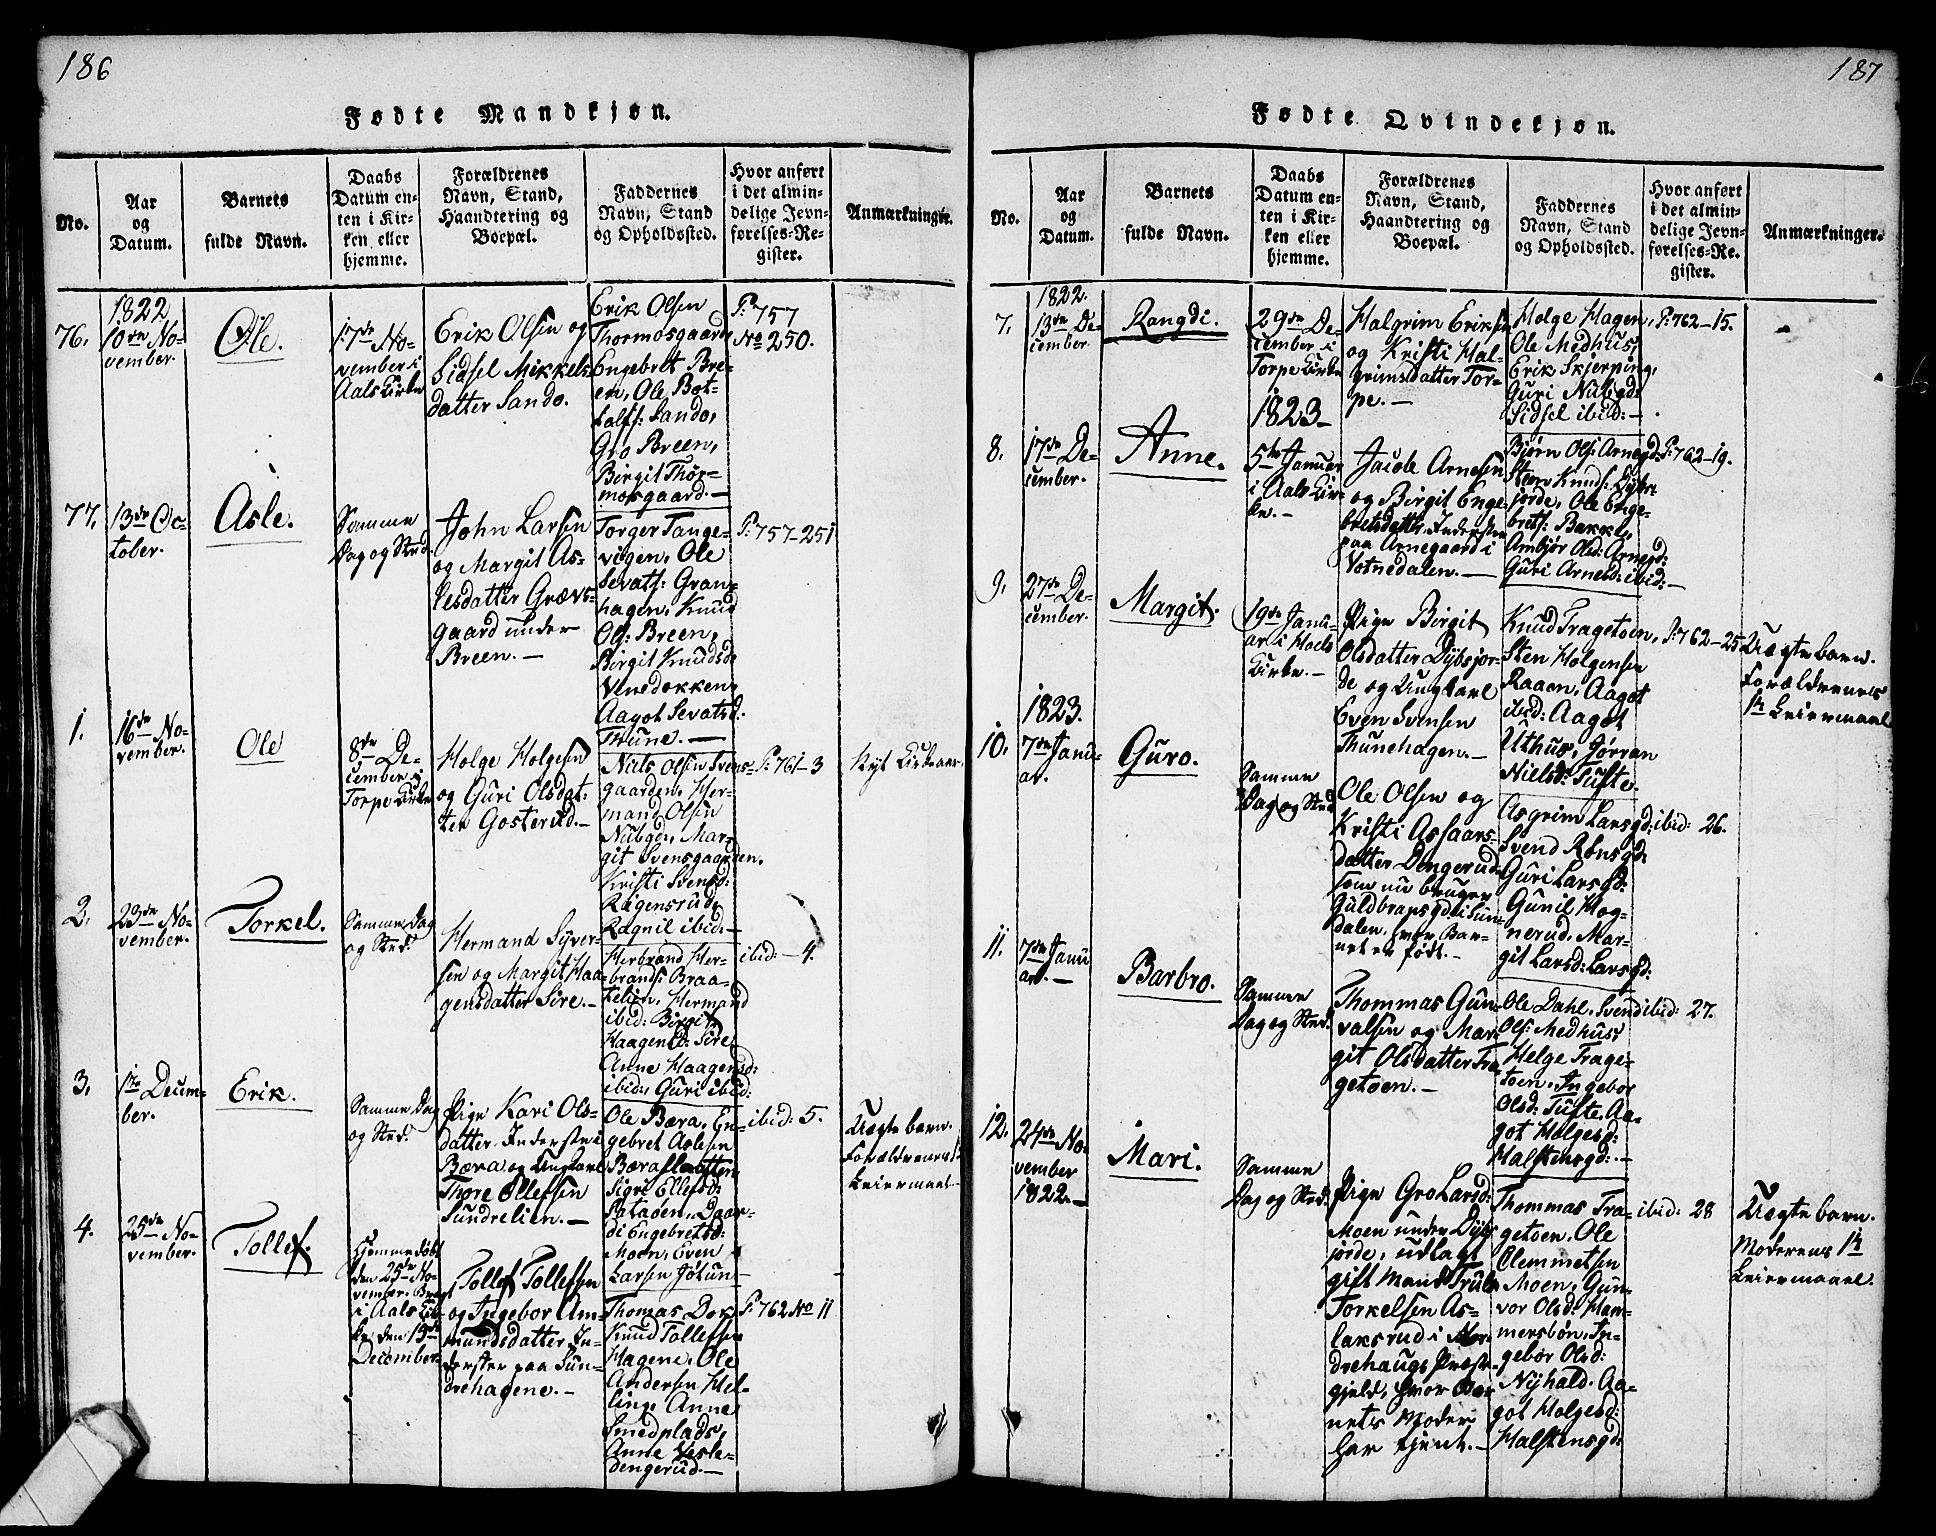 186
Fødte Mandkjøn.
No.
Aar
og
Datum.
Barnets
fulde Navn.
Daabs
Datum en-
ten i Kir-
ken eller
hjemme.
Forældrenes
Navn, Stand,
Haandtering og
Boepæl.
Faddernes
Navn, Stand
og Opholdssted.
Hvor anført
i det almin-
delige Jevn-
førelses-Re-
gister.
Anmærkninger.
76.
1822
10de No-
vember.
Ole.
17de No-
vember i
Aals Kirke
Erik Olsen og
Sidsel Mikkels-
datter Sando.
Erik Olsen
Thormosgaard
Engebret Bre-
en, Ole Bot-
tolfs: Sando,
Gro Breen,
Birgit Thor-
mosgaard.—
P: 757
No 250.
77.
13de Oc-
tober.
Asle.
Samme
Dag og Sted.
John Larsen
og Margit As-
lesdatter Grøvs-
gaard under
Breen.—
Torger Tange-
vigen, Ole
Sevats: Gran-
hagen, Knud
Ols: Breen,
Birgit Knudsd:
Vinedokken,
Aagot Sevatsd:
Thune.—
P: 757-251
1.
16de No-
vember.
Ole
8de De-
cember i
Torpe Kirke
Holge Holgesen
og Guri Olsdat-
ter Gosterud.—
Nils Olsen Svens-
gaarden, Her-
mand Olsen
Nubgen, Mar-
git Svensgaarden,
Kristi Svensd:
Rugensrud,
Ragnil ibid:—
P: 761-3
Nyt Kirkeaar.
2.
23de No-
vember.
Torkel.
Samme Dag
og Sted.
Hermand Syver-
sen og Margit Haa-
gensdatter Sire.—
Herbrand Her-
brands: Braa-
telien, Hermand
ibid: Birgit
Haagensd: Sire,
Anne Haagensd:
ibid:, Guri ibid:
ibid:—4.
3.
1te Decem-
ber.
Erik.
Samme Dag
og Sted.
Pige Kari Ols-
datter Inderste i
Bæra og Ungkarl
Thore Ellefsen
Sundrelien.—
Ole Bæra, En-
gebret Aslesen
Bæraslaatten
Sigri Ellefsd:
Pataøen, Daar-
di Engebretsd:
Moen, Even
Larsen Jøtun—
ibid: 5.
Uægte barn.
Forældrenes 1te
Leiermaal—
4.
25de No-
vember.
Tollef.
Hjemmedøbt
den 25de No-
vember. Bragt
i Aals Kir-
ke den 15de
December
Tollef Tollefsen
og Ingebor Am-
mundsdatter, In-
derster paa Sun-
drehagene.—
Thomas Dok,
Knud Tollefsen
Hagene, Ole
Andersen Hel-
ling, Anne
Smedplads,
Anne Vesle-
dengerud.—
P: 762 No 11
187
Fødte Qvindekjøn.
No.
Aar
og
Datum.
Barnets
fulde Navn.
Daabs
Datum en-
ten i Kir-
ken eller
hjemme.
Forældrenes
Navn, Stand,
Haandtering og
Boepæl.
Faddernes
Navn, Stand
og Opholdssted.
Hvor anført
i det almin-
delige Jevn-
førelses-Re-
gister.
Anmærkninger.
7.
1822.
13de De-
cember.
Rangdi.
29de De-
cember i
Torpe Kirke
Halgrim Eriksen
og Kristi Hal-
grimsdatter Tor-
pe.—
Holge Hagen,
Ole Medhus,
Erik Skjerping,
Guri Nubgd:
Sidsel ibid:—
P: 762-15.
8.
17de De-
cember.
Anne.
1823—
5te Januar
i Aals Kir-
ke.—
Jacob Arnesen
og Birgit Enge-
bretsdatter Inderster
paa Arnegaard i
Votnedalen.—
Bjørn Ols: Arnegd:
Sten Knuds: Dybs-
jorde, Ole Enge-
brets: Bakke,
Ambjør Olsd: Arnegd:
Guri Arnesd: ibid:—
P: 762-19.
9.
27de De-
cember.
Margit.
19de Janu-
ar i Hols
Kirke.—
Pige Birgit
Olsdatter Dybsjor-
de og Ungkarl
Even Svensen
Thunehagen.—
Knud Tragetoen,
Sten Holgensen
Raaen, Aagot
ibid: Aagot
Uthus, Jorran
Nielsd: Tufte.
P: 762-25
Uægte barn.
Forældrenes
1te Leiermaal
10.
1823.
7de Janu-
ar.
Guro.
Samme
Dag og Sted.
Ole Olsen og
Kristi Assars-
datter Dengerud
som nu bruger
Guldbransgd: i Sun-
dalen, hvor Bar-
net er født.—
Asgrim Larsgd:
Svend Rønsgd:
Guri Larsgd:
Gunil Hog-
nerud, Mar-
git Larsd: Larsgd:
ibid: 26.
11.
7de Janu-
ar.—
Barbro.
Samme
Dag og Sted.
Thommas Gun-
valsen og Mar-
git Olsdatter Tra-
getoen.—
Ole Dahl, Svend
Ols: Medhus,
Helge Trage-
toen, Ingebor
Olsd: Tufte, Aa-
got Holgesd:
Halstensgd:—
ibid: 27.
12.
24de No-
vember
1822.—
Mari.
Samme
Dag og Sted.
Pige Gro Larsd:
Moen under Dybs-
jorde, udlagt
gift Mand Truls
Torkelsen As-
laksrud i Nor-
drehougs Præste-
gjeld, hvor Bar-
nets Moder
har tjent.—
Thommas Tra-
getoen, Ole
Clemmetsen
Moen, Gun-
vor Olsd: Ham-
mersbøn, In-
gebor Olsd:
Nyhald, Aa-
got Holgesd:
Halstensgd:
ibid: 28
Uægte barn.
Moderens 1te
Leiermaal.